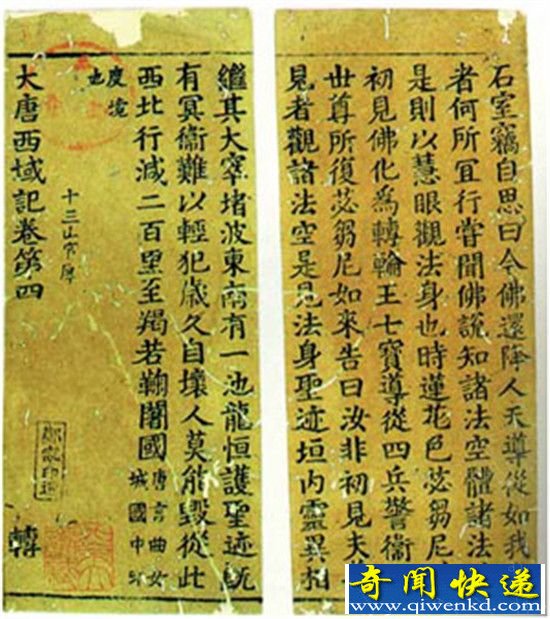 石室竊自思曰今佛還降人天導從如我
者何所冝行嘗聞佛說知諸法空體諸法
是則以慧眼觀法身也時蓮花色苾芻尼
初見佛化爲轉輪王七寶導從四兵警衛
世尊所復苾芻尼如來告曰汝非初見夫
見者觀諸法空是見法身聖迹垣內靈異相
繼其大窣堵波東南有一池龍恒護聖迹既
有冥衛難以輕犯歲久自壞人莫能毀從此
西北行減二百里至羯若鞠闍國唐言曲女城國中印
度境也
大唐西域記卷第四
十三
轉
奇闻快递
www.qiwenkd.com